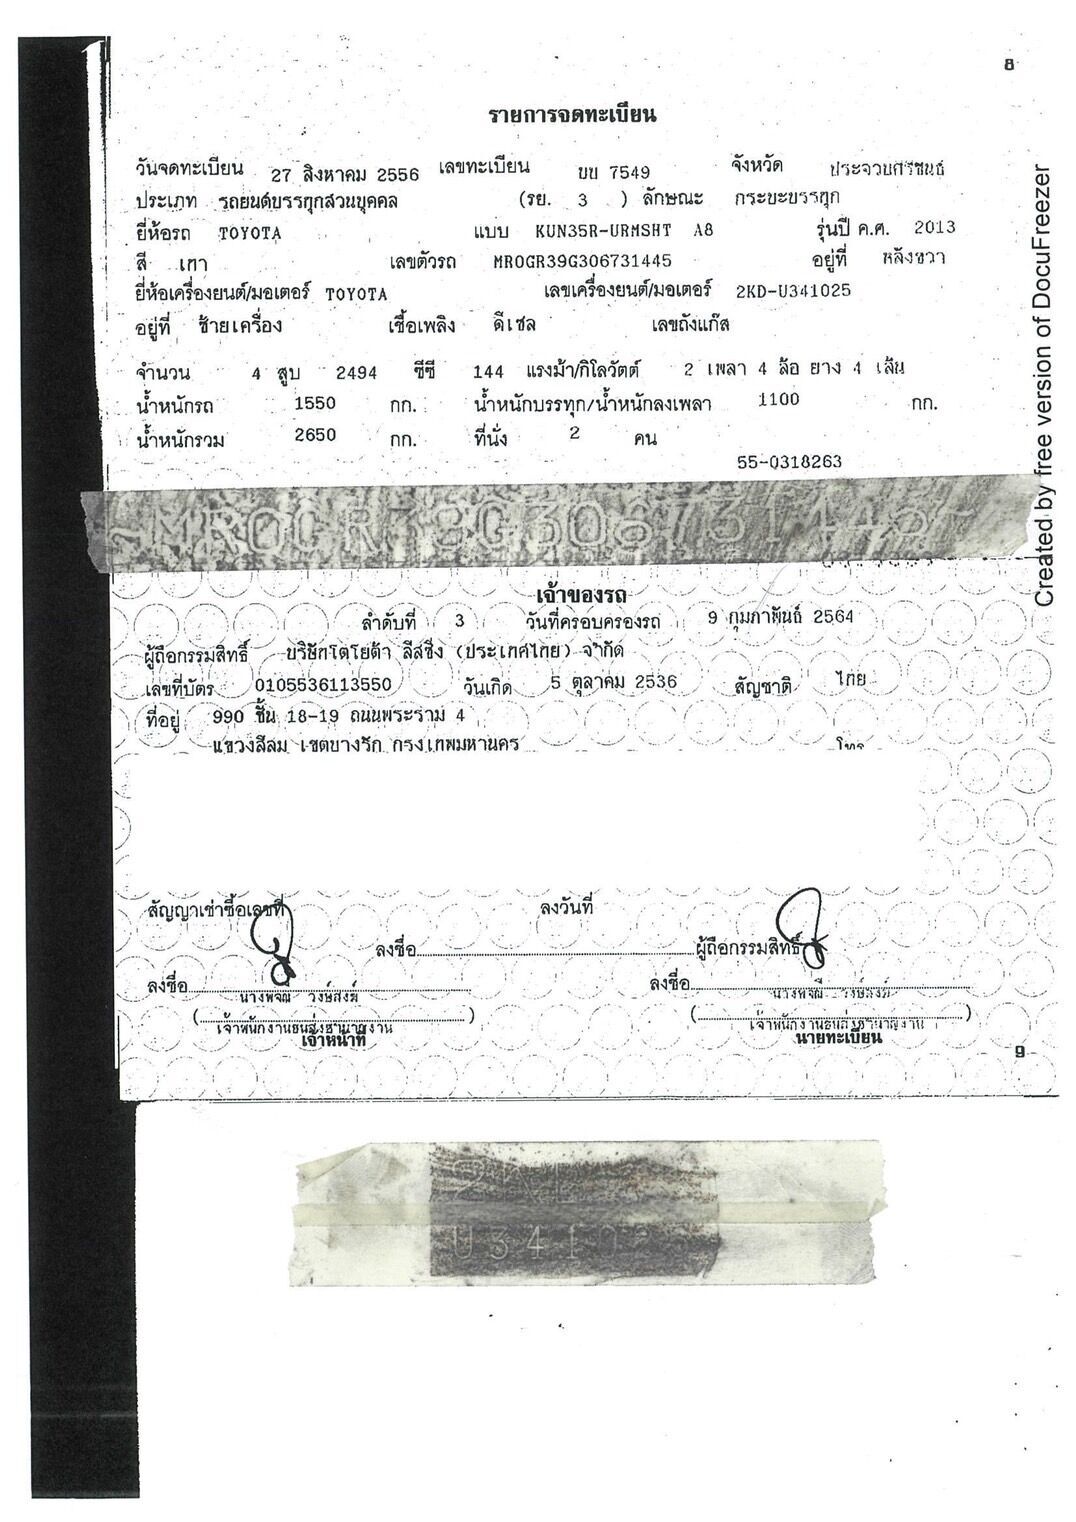 8
รายการจดทะเบียน
วันจดทะเบียน 27 สิงหาคม 2556 เลขทะเบียน บบ 7549 จังหวัด ประจวบคีรีขันธ์
ประเภท รถยนต์บรรทุกส่วนบุคคล (รย. 3 ) ลักษณะ กระบะบรรทุก
ยี่ห้อรถ TOYOTA แบบ KUN35R-URMSHT A8 รุ่นปี ค.ศ. 2013
สี เทา เลขตัวรถ MR0GR39G306731445 อยู่ที่ หลังขวา
ยี่ห้อเครื่องยนต์/มอเตอร์ TOYOTA เลขเครื่องยนต์/มอเตอร์ 2KD-U341025
อยู่ที่ ซ้ายเครื่อง เชื้อเพลิง ดีเซล เลขถังแก๊ส
จำนวน 4 สูบ 2494 ซีซี 144 แรงม้า/กิโลวัตต์ 2 เพลา 4 ล้อ ยาง 4 เส้น
น้ำหนักรถ 1550 กก. น้ำหนักบรรทุก/น้ำหนักลงเพลา 1100 กก.
น้ำหนักรวม 2650 กก. ที่นั่ง 2 คน
55-0318263
MR0GR39G306731445
เจ้าของรถ
ลำดับที่ 3 วันที่ครอบครองรถ 9 กุมภาพันธ์ 2564
ผู้ถือกรรมสิทธิ์ บริษัทโตโยต้า ลีสซิ่ง (ประเทศไทย) จำกัด
เลขที่บัตร 0105536113550 วันเกิด 5 ตุลาคม 2536 สัญชาติ ไทย
ที่อยู่ 990 ชั้น 18-19 ถนนพระราม 4
แขวงสีลม เขตบางรัก กรุงเทพมหานคร โทร
สัญญาเช่าซื้อเลขที่ ลงวันที่
ลงชื่อ ผู้ถือกรรมสิทธิ์
ลงชื่อ ลงชื่อ
(นางพจณี วงษ์สงฆ์) (นางพจณี วงษ์สงฆ์)
เจ้าพนักงานขนส่งชำนาญงาน เจ้าพนักงานขนส่งชำนาญงาน
เจ้าหน้าที่ นายทะเบียน
9
U34102
Created by free version of DocuFreezer